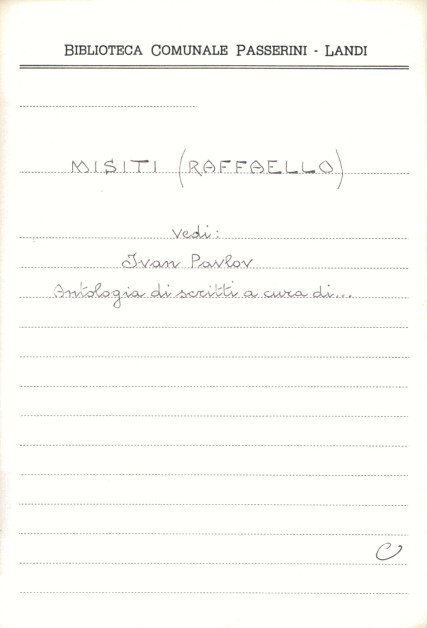 BIBLIOTECA COMUNALE PASSERINI - LANDI
MISITI (RAFFAELLO)
vedi:
Ivan Pavlov
Antologia di scritti a cura di...
C